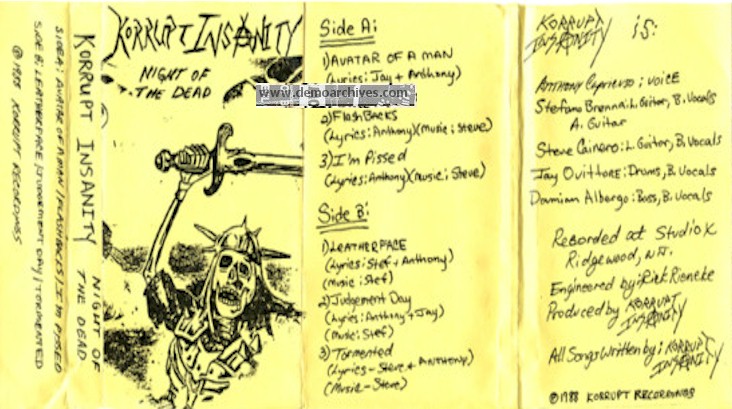 SIDE A: AVATAR OF A MAN / FLASHBACKS / I'M PISSED
SIDE B: LEATHERFACE / JUDGEMENT DAY / TORMENTED
© 1988 KORRUPT RECORDINGS
KORRUPT INSANITY
NIGHT OF
THE DEAD
KORRUPT INSANITY
NIGHT OF
THE DEAD
www.demoarchives.com
Side A:
1) AVATAR OF A MAN
(Lyrics: Jay + Anthony)
2) FlashBacks
(Lyrics: Anthony) (music: Steve)
3) I'm Pissed
(Lyrics: Anthony) (music: Steve)
Side B:
1) LEATHERFACE
(Lyrics: Stef + Anthony)
(music: Stef)
2) Judgement Day
(Lyrics: Anthony + Jay)
(music: Stef)
3) Tormented
(Lyrics - Steve + ANTHONY)
(Music - Steve)
KORRUPT
INSANITY is:
Anthony : VOICE
Stefano Brenna: L. Guitar, B. Vocals
A. Guitar
Steve Cainero: L. Guitar, B. Vocals
Jay Ovittore: Drums, B. Vocals
Damian Albergo: Bass, B. Vocals
Recorded at Studio X
Ridgewood, NJ.
Engineered by: Rick Rieneke
Produced by KORRUPT
INSANITY
All Songs Written by: KORRUPT
INSANITY
© 1988 KORRUPT RECORDINGS